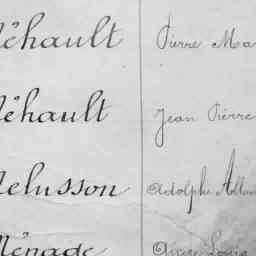 éhault Pierre Ma
éhault Jean Pierre
elusson Adolphe
énade